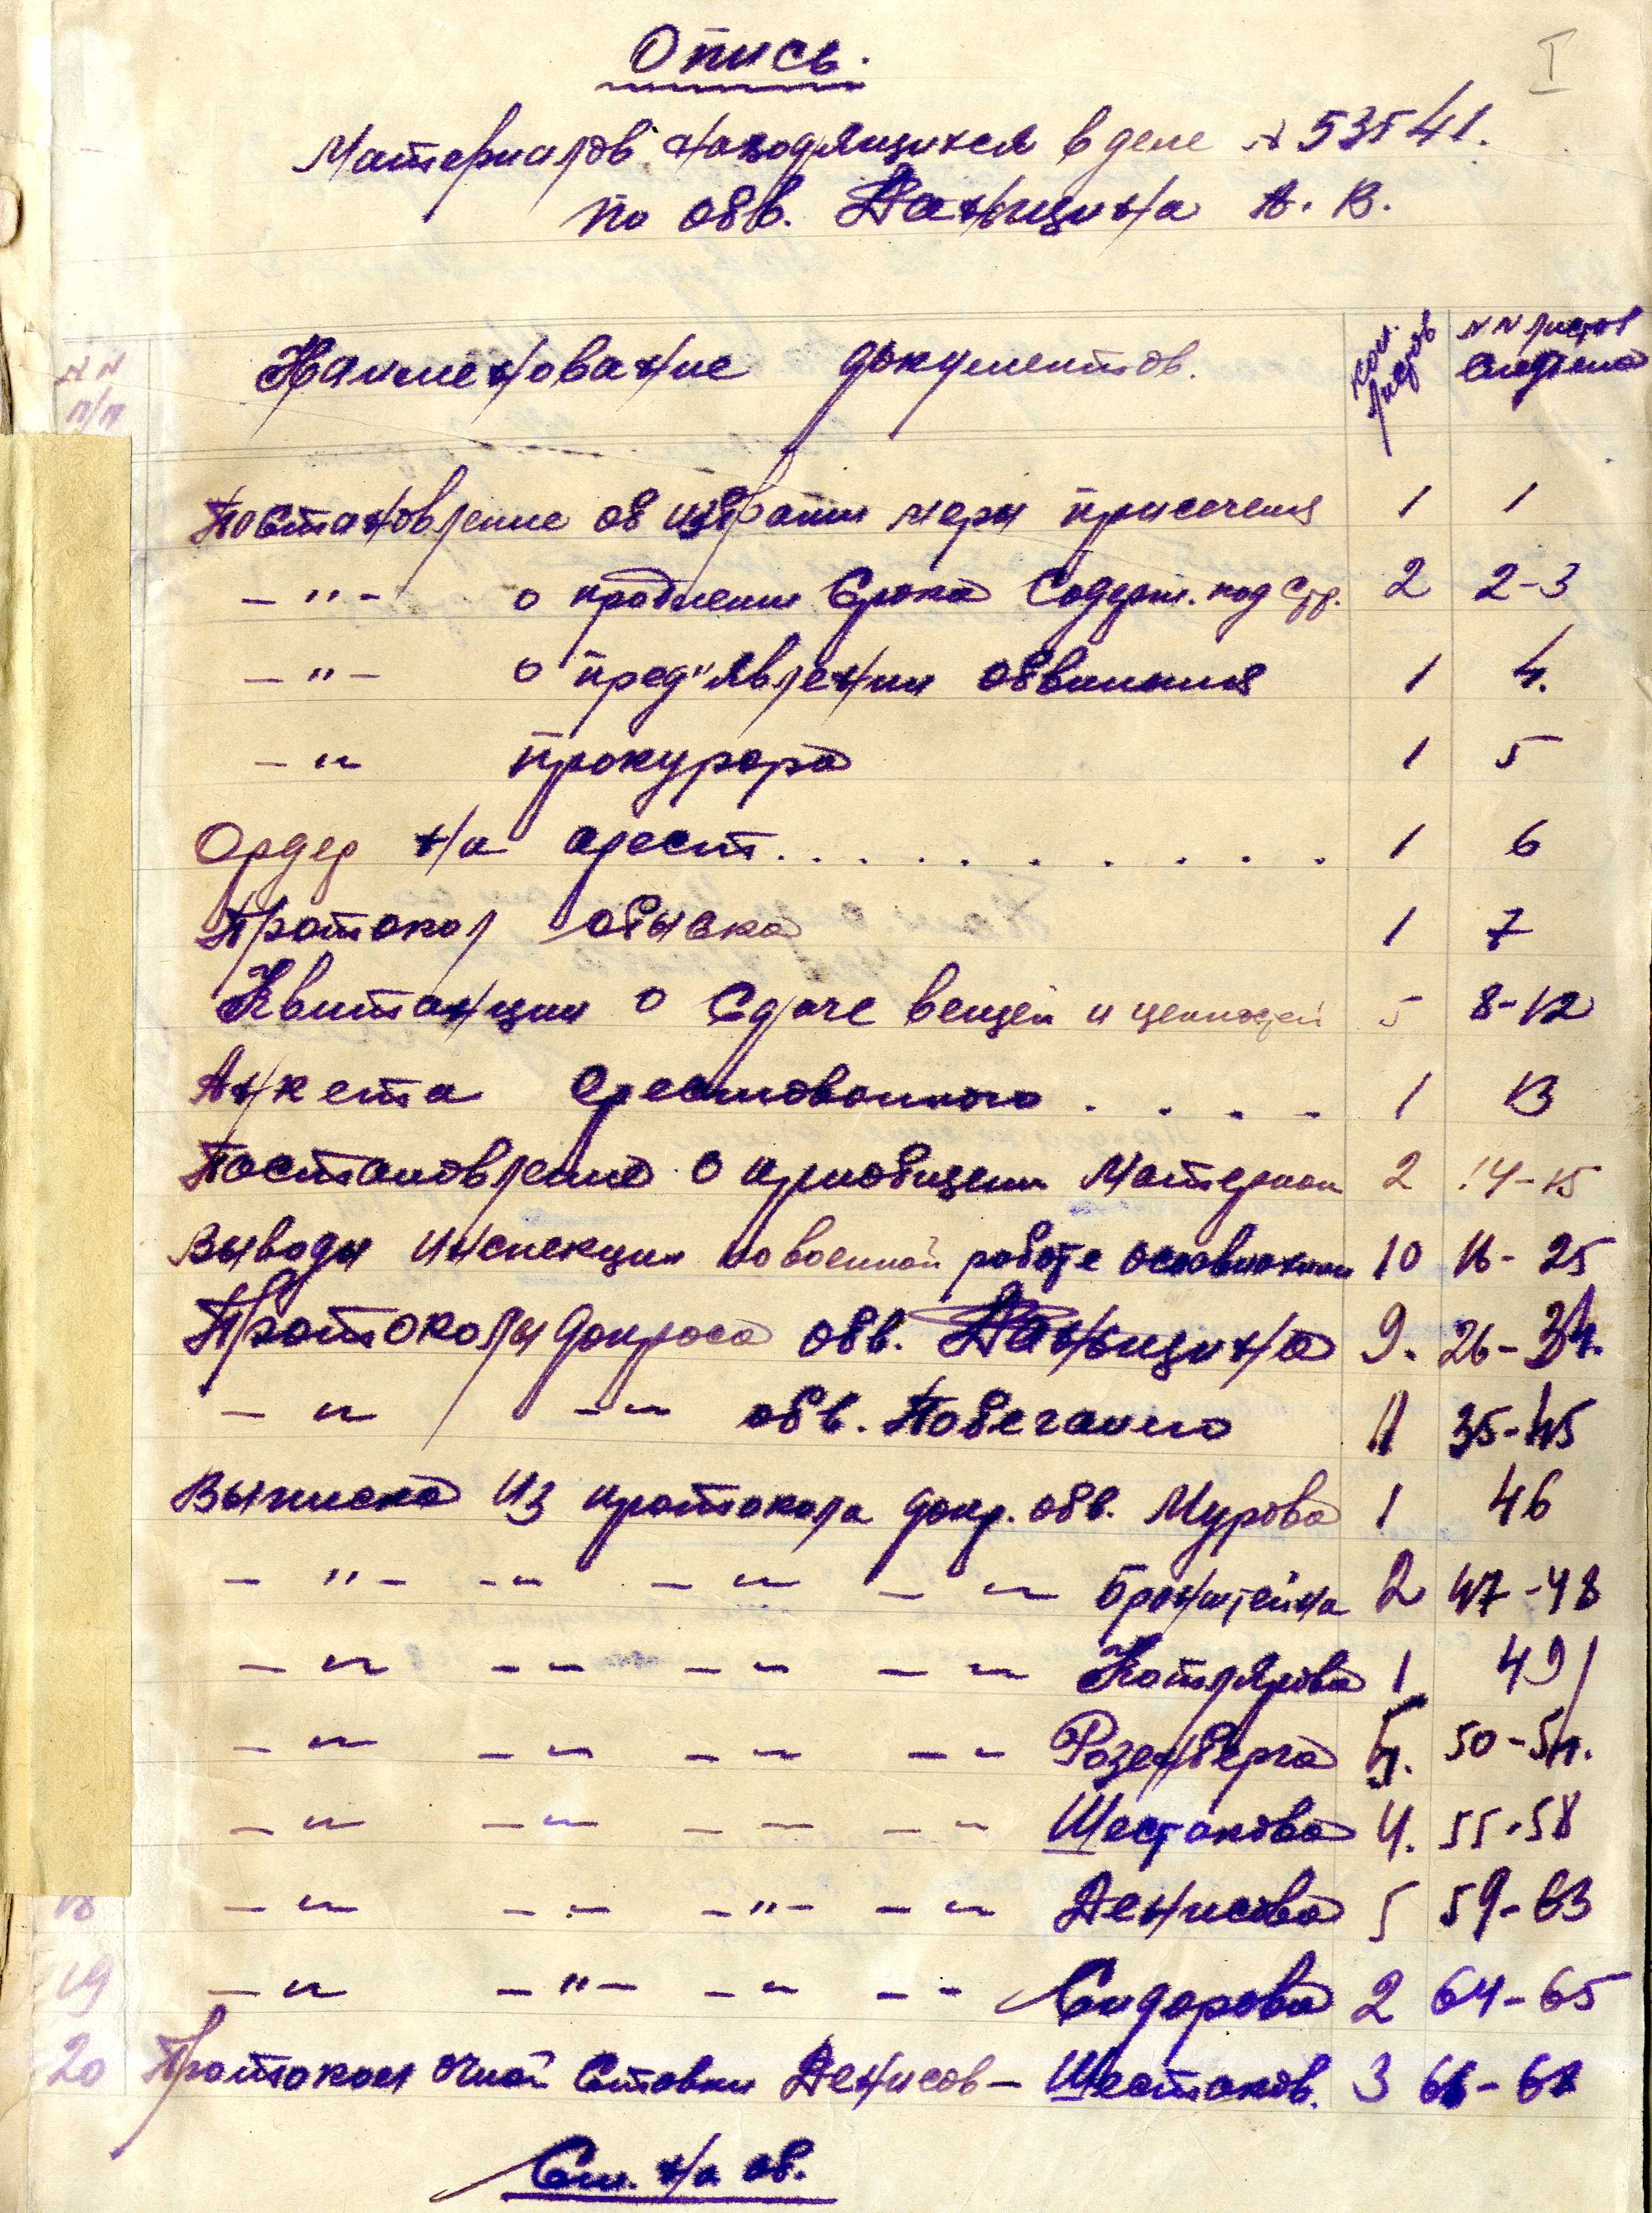 I
Опись.
Материалов находящихся в деле № 53541.
по обв. Даньщина А. В.
№№ п/п Наименование документов. кол. листов №№ листов следдела
Постановление об избрании меры пресечения 1 1
- " - о продлении срока содерж. под стр. 2 2-3
- " - о пред'явлении обвинения 1 4.
- " прокурора 1 5
Ордер на арест. . . . . . . . . . . 1 6
Протокол обыска 1 7
Квитанции о сдаче вещей и ценностей 5 8-12
Анкета арестованного . . . . 1 13
Постановление о приобщении материал 2 14-15
Выводы инспекции по военной работе осоавиахим 10 16-25
Протоколы допроса обв. Даньщина 9. 26-34.
- " - " обв. Побегайло 11 35-45
Выписка из протокола допр. обв. Мурова 1 46
- " - - " - " - " Бронштейна 2 47-48
- " - " - " - " Котлярова 1 49
- " - " - " - " Розенберга 5. 50-54.
- " - " - " - " Шестакова 4. 55-58
18 - " - " - " - - " Денисова 5 59-63
19 - " - " - - " - " Сидорова 2 64-65
20 Протокол очной ставки Денисов - Шестаков. 3 66-68
См. на об.